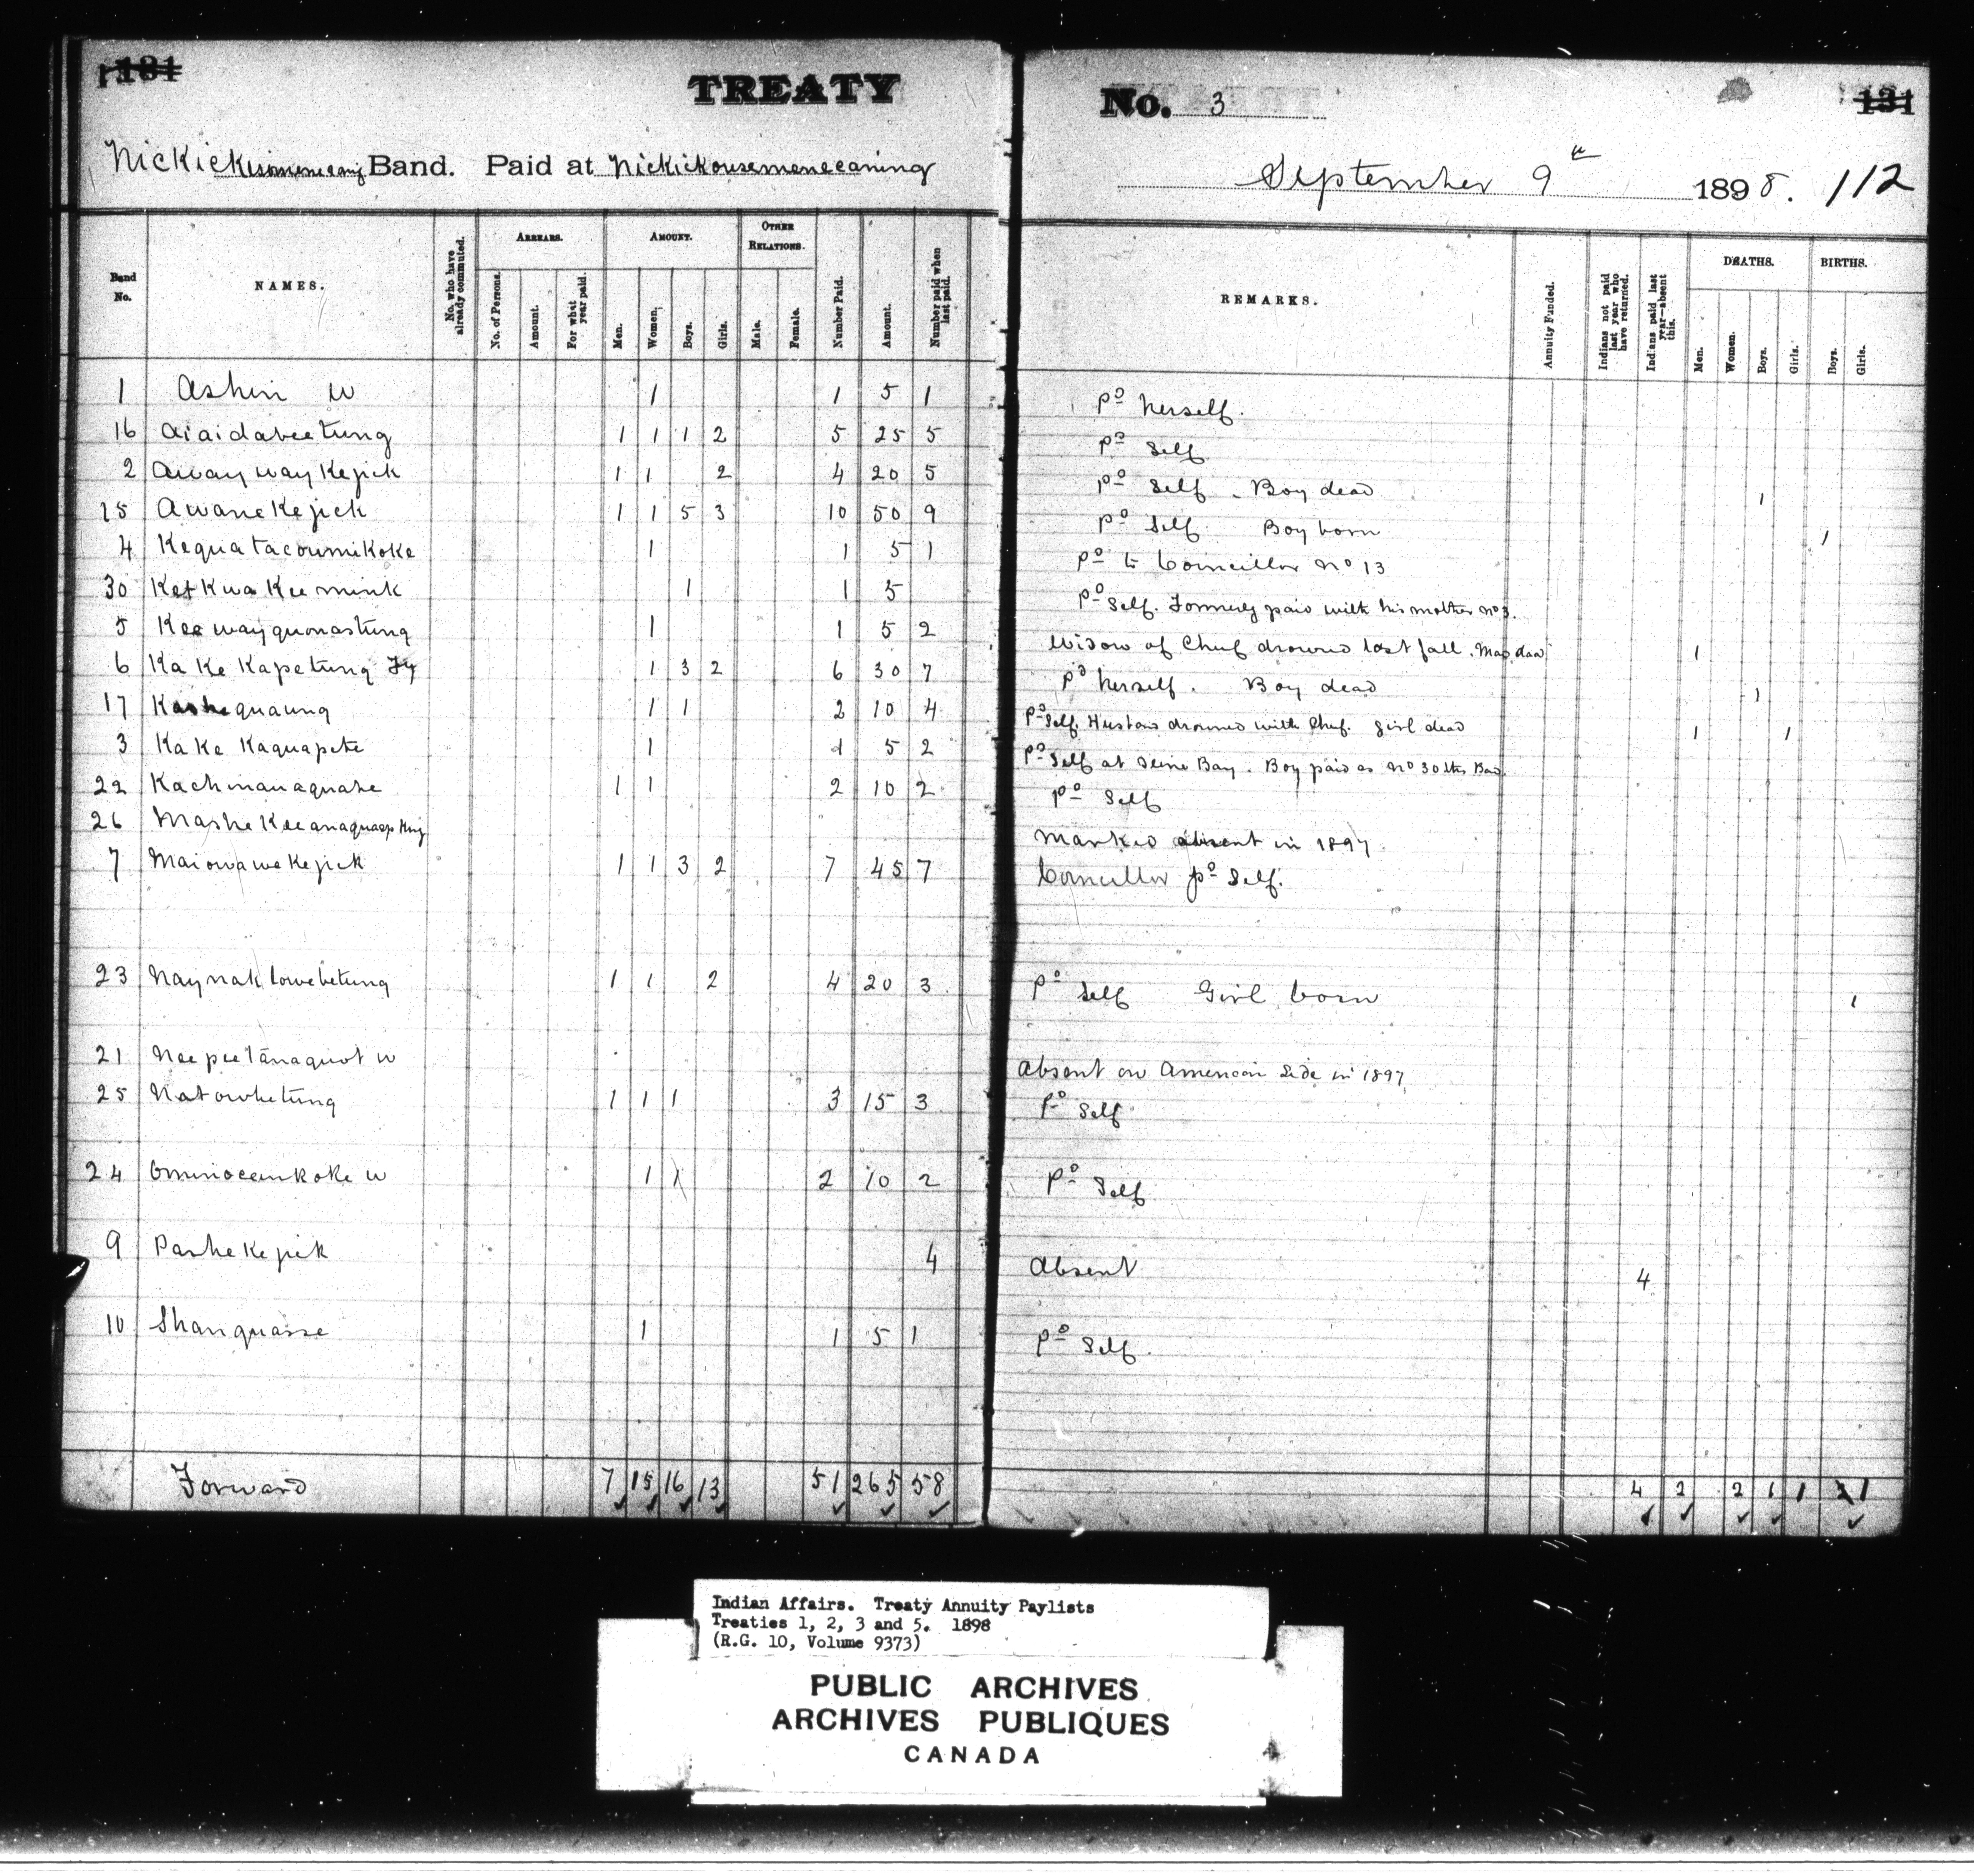 131 TREATY No. 3 131
Nickickisimeneecaning Band. Paid at Nickickousemeneecaning September 9th 1898. 112
Band No. NAMES. No. who have already commuted. ARREARS. No. of Persons. Amount. For what year paid. AMOUNT. Men. Women. Boys. Girls. OTHER RELATIONS. Male. Female. Number Paid. Amount. Number paid when last paid. REMARKS. Annuity Funded. Indians not paid last year who have returned. Indians paid last year—absent this. DEATHS. Men. Women. Boys. Girls. BIRTHS. Boys. Girls.
1 Ashin W 1 1 5 1 Pd herself.
16 Aiaidabeetung 1 1 1 2 5 25 5 Pd Self.
2 Awaywaykejick 1 1 2 4 20 5 Pd Self. Boy dead 1
15 Awanekejick 1 1 5 3 10 50 9 Pd Self. Boy born 1
4 Kequatacoumikoke 1 1 5 1 Pd to Councillor No 13
30 KetKwaKeemink 1 1 5 Pd Self. Formerly paid with his mother No 3.
5 Keewayquonastung 1 1 5 2 Widow of Chief drowned last fall. Man dead 1
6 Ka Ke Kapetung 1 3 2 6 30 7 Pd herself. Boy dead 1
17 Kashequaung 1 1 2 10 4 Pd Self. Husband drowned with Chief. Girl dead 1 1
3 Ka Ke Kaquapete 1 1 5 2 Pd Self at Seine Bay. Boy paid as No 30 this Band.
22 Kachinanaquahe 1 1 2 10 2 Pd Self
26 MasheKeeanaquaap King Marked absent in 1897
7 Maiowawekejick 1 1 3 2 7 45 7 Councillor Pd Self.
23 Naynaktowebetung 1 1 2 4 20 3 Pd Self Girl born 1
21 Neepeetanaquot W Absent on American Side in 1897
25 Natowhetung 1 1 1 3 15 3 Pd Self
24 Ominoceenkoke W 1 1 2 10 2 Pd Self
9 Pashekejick 4 Absent 4
10 Shanguasse 1 1 5 1 Pd Self.
Forward 7 15 16 13 51 265 58 4 2 2 1 1 1
Indian Affairs. Treaty Annuity Paylists
Treaties 1, 2, 3 and 5. 1898
(R.G. 10, Volume 9373)
PUBLIC ARCHIVES
ARCHIVES PUBLIQUES
CANADA